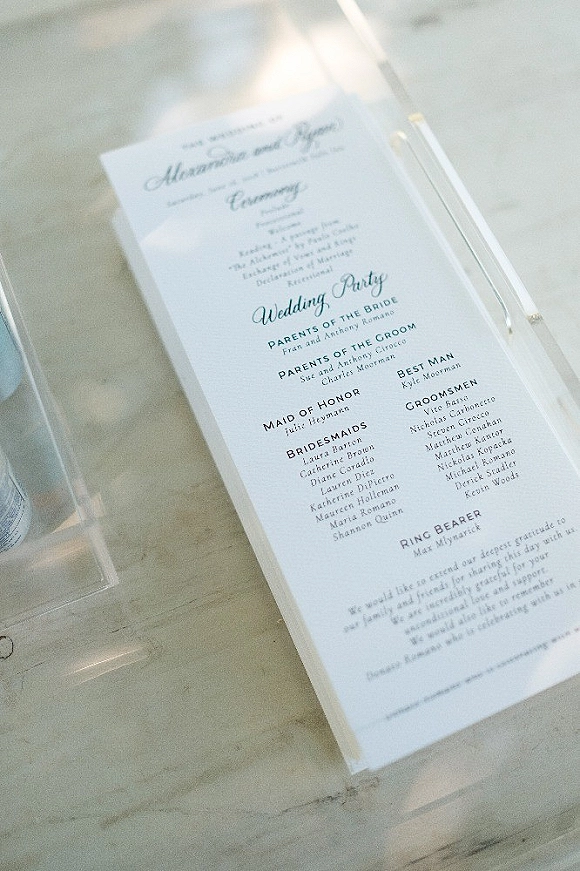 THE WEDDING OF
Alexandra and Ryan
Saturday, June
Ceremony
Prelude
Processional
Welcome
Reading - A passage from
"The Alchemist" by Paulo Coelho
Exchange of Vows and Rings
Declaration of Marriage
Recessional
Wedding Party
PARENTS OF THE BRIDE
Fran and Anthony Romano
PARENTS OF THE GROOM
Sue and Anthony Cirocco
Charles Moorman
MAID OF HONOR
Julie Heymann
BRIDESMAIDS
Laura Barton
Catherine Brown
Diane Coradlo
Lauren Diez
Katherine DiPietro
Maureen Holleman
Maria Romano
Shannon Quinn
BEST MAN
Kyle Moorman
GROOMSMEN
Vito Basso
Nicholas Carboneto
Steven Cirocco
Matthew Conahan
Matthew Kantor
Nicholas Kopacka
Michael Romano
Derick Stadler
Kevin Woods
RING BEARER
Max Mlynarick
We would like to extend our deepest gratitude to
our family and friends for sharing this day with us.
We are incredibly grateful for your
unconditional love and support.
We would also like to remember
Donato Romano who is celebrating with us in